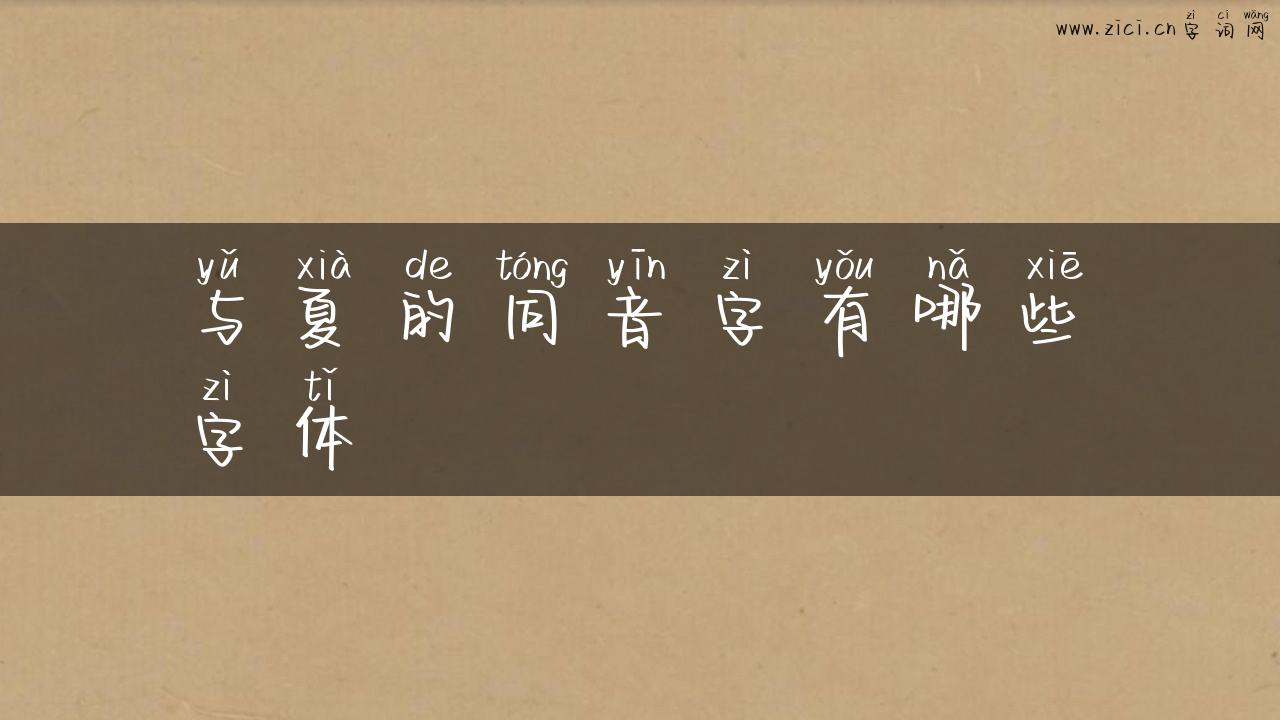 zì cí wǎng
www.zici.cn 字词网
yǔ xià de tóng yīn zì yǒu nǎ xiē
与夏的同音字有哪些
zì tǐ
字体